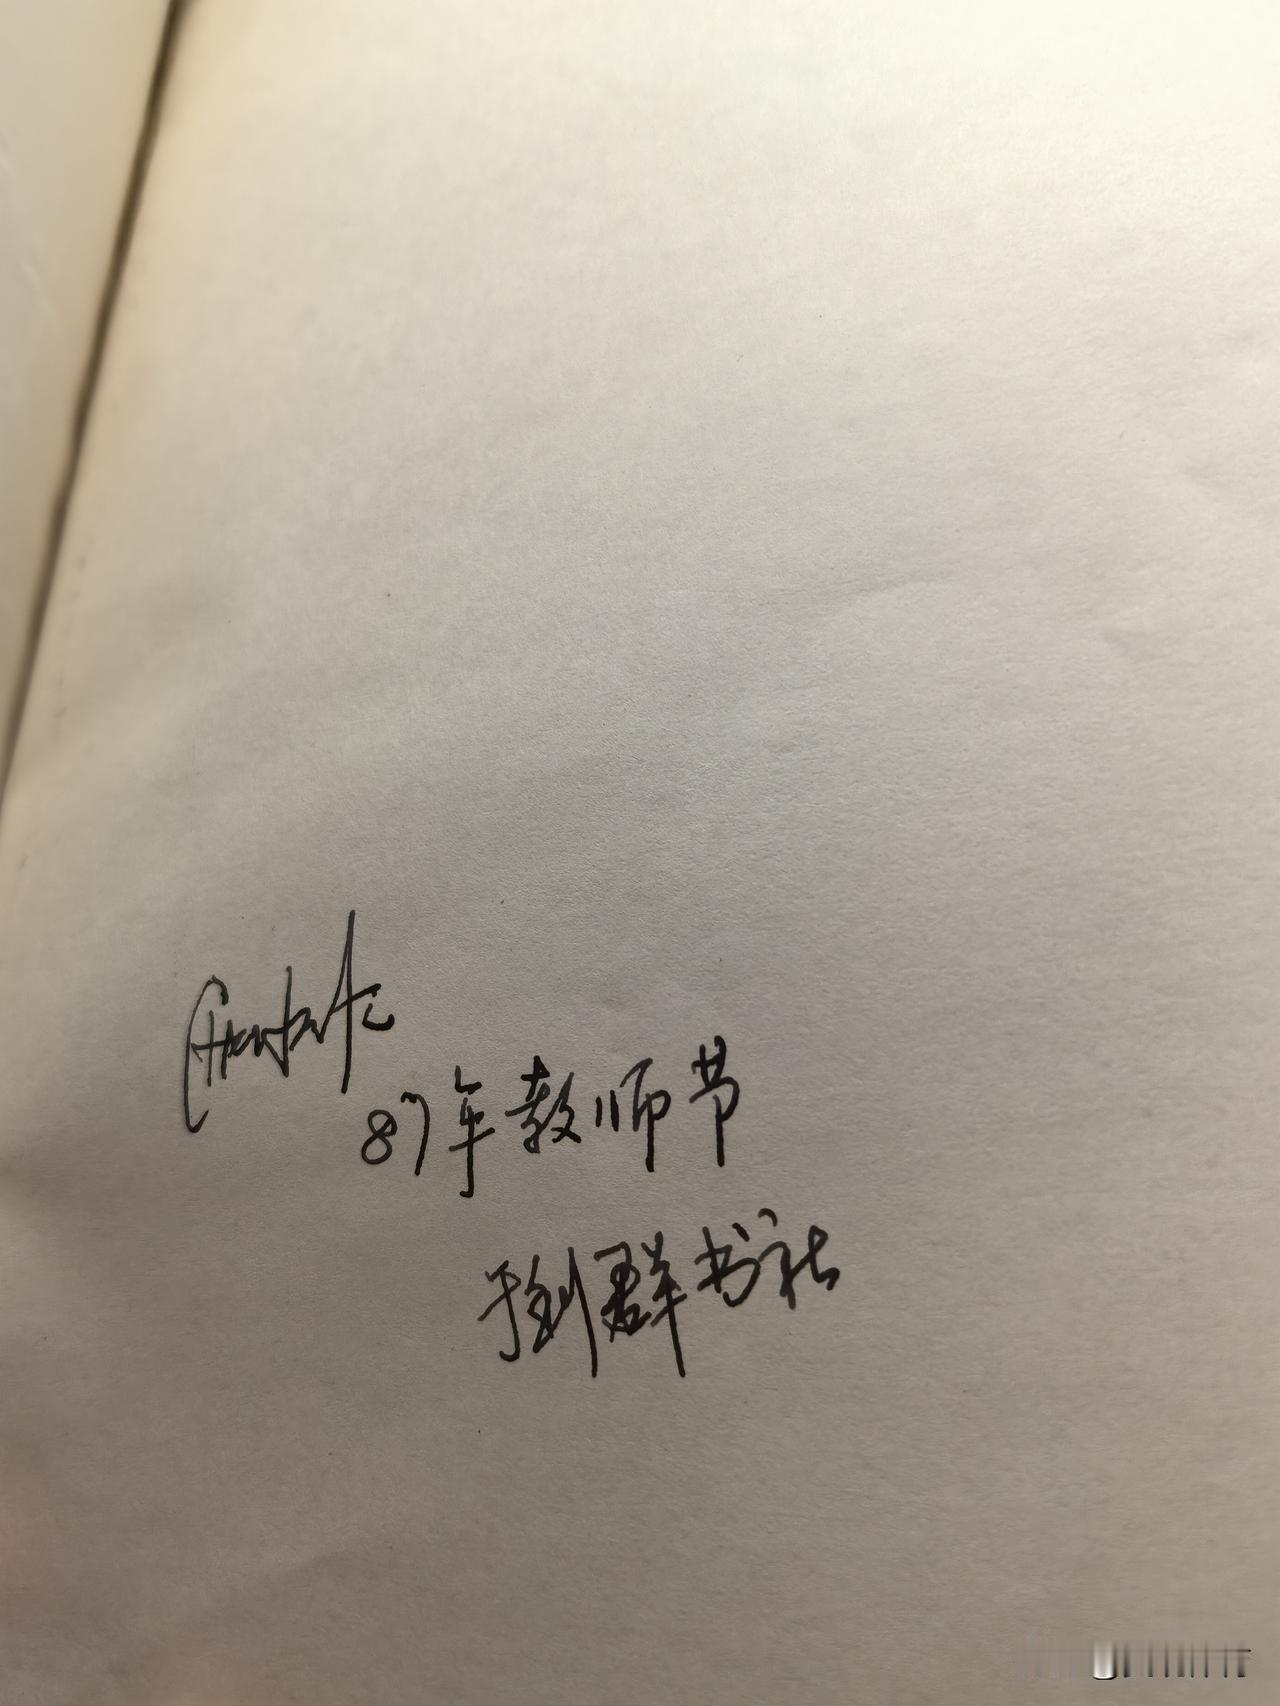 87年教师节
于创群书社